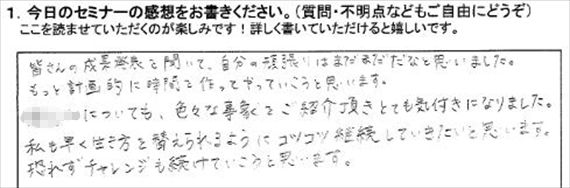 1. 今日のセミナーの感想をお書きください。(質問・不明点などもご自由にどうぞ)
ここを読ませていただくのが楽しみです!詳しく書いていただけると嬉しいです。
皆さんの成果発表を聞いて、自分の頑張りはまだまだだなと思いました。
もっと計画的に時間を作ってやっていこうと思います。
についても、色々な事象をご紹介頂きとても気付きになりました。
私も早く生き方を替えられるようにコツコツ継続していきたいと思います。
恐れずチャレンジも続けていこうと思います。